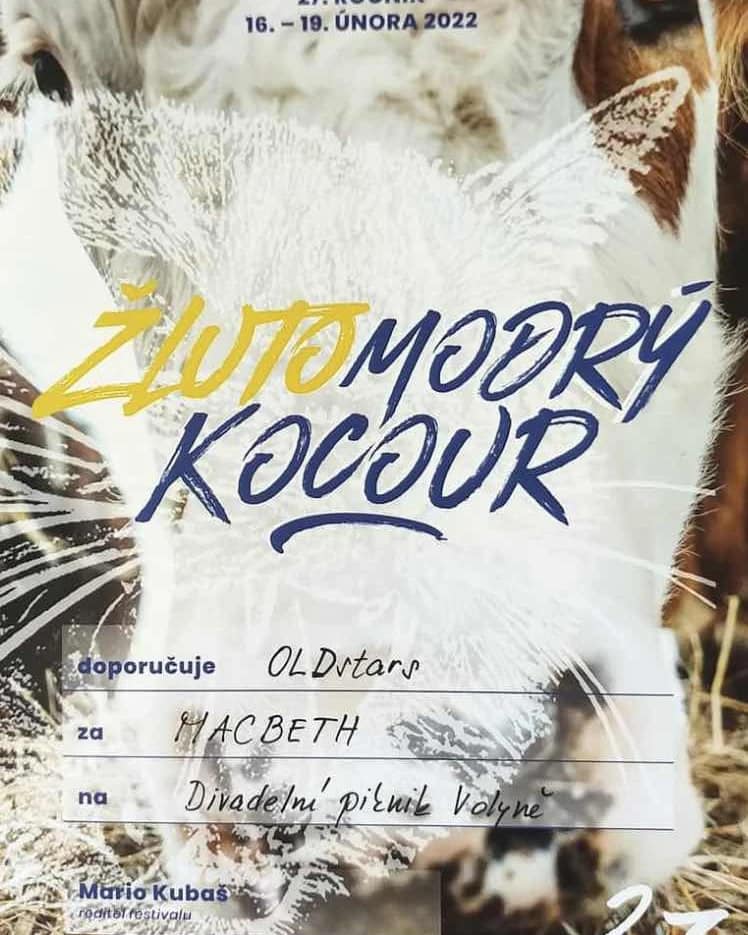 27. ROČNÍK
16. – 19. ÚNORA 2022
ŽLUTOMODRÝ
KOCOUR
doporučuje OLDstars
za MACBETH
na Divadelní piknik Volyně
Mario Kubaš
ředitel festivalu
27